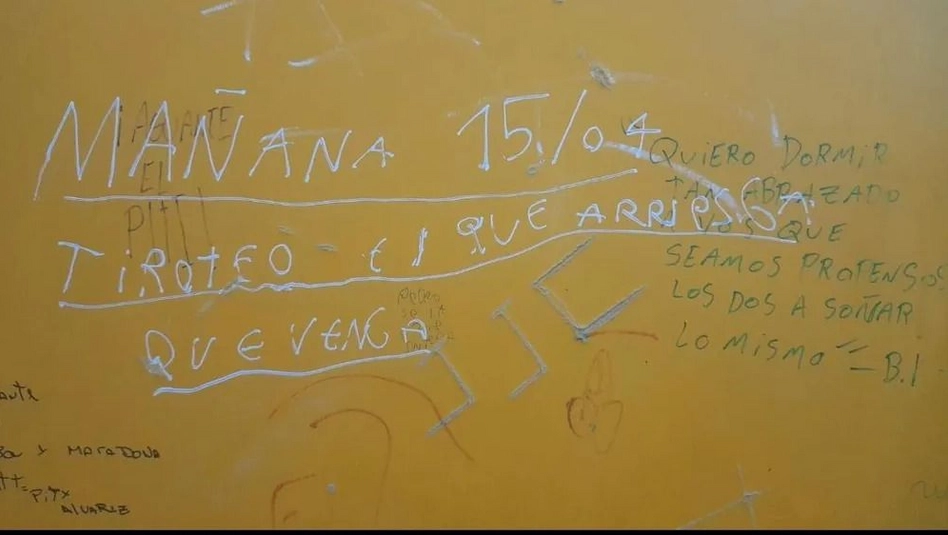 MAÑANA 15/04
TiROTEO EL QUE ARRIESGA
QUE VENGA
AGUANTE
EL
PITY
QUiERO DORMIR
TAN ABRAZADO
A VOS QUE
SEAMOS PROPENSOS
LOS DOS A SOÑAR
LO MISMO = B.I
Y MARADONA
PiTY
ALVAREZ